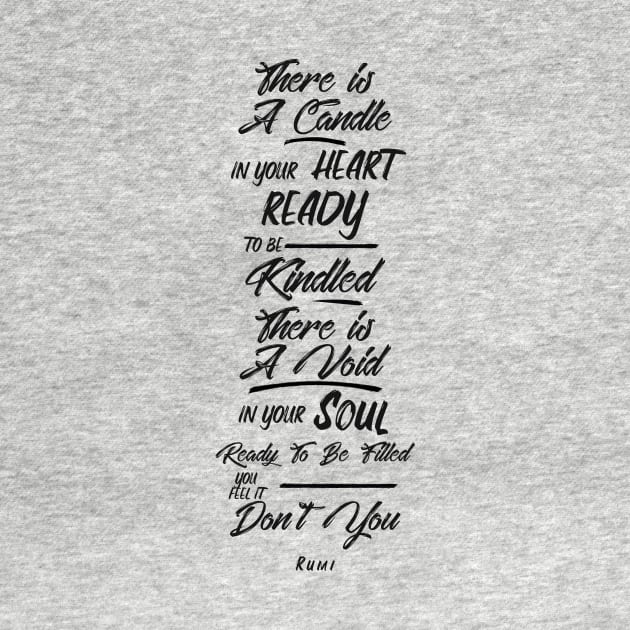 There is
A Candle
IN YOUR HEART
READY
TO BE
Kindled
There is
A Void
IN YOUR SOUL
Ready To Be Filled
YOU
FEEL IT
Don't You
RUMI